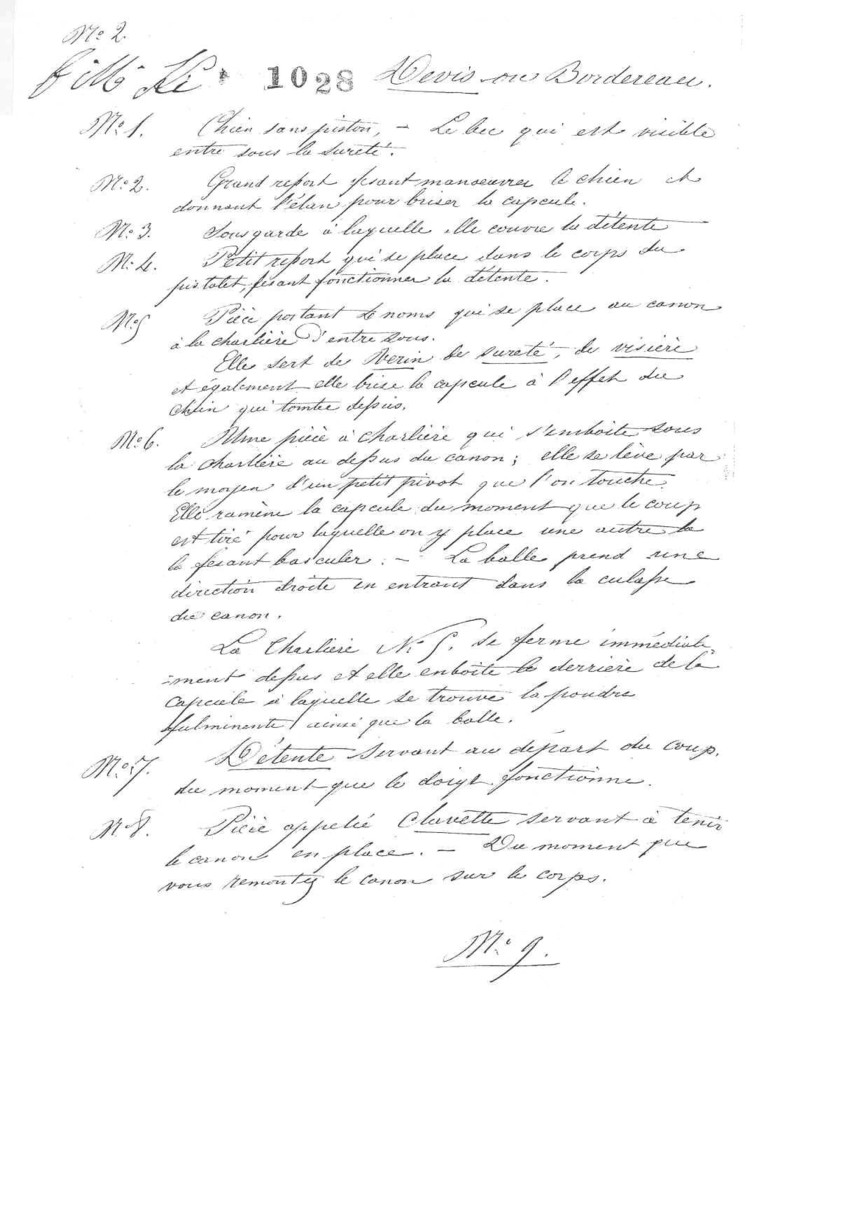 N.o 2.
1028 Devis ou Bordereau.
N.o 1. Chien sans piston, — Le bec qui est visible
entre sous la sureté.
N.o 2. Grand report fesant manœuvrer le chien et
donnant l'élan pour briser la capcule.
N.o 3. Sous garde à laquelle elle couvre la détente
N.o 4. Petit report qui se place dans le corps du
pistolet, fesant fonctionner la détente.
N.o 5 Pièce portant le noms qui se place au canon
à la charlière d'entre sous.
Elle sert de Verin de sureté, de visière
et également elle brise la capcule à l'effet du
chien qui tombe depus.
N.o 6. Une pièce à charlière qui s'emboite sous
la charlière au depus du canon; elle se lève par
le moyen d'un petit pivot que l'on touche.
Elle ramène la capcule du moment que le coup
est tiré pour laquelle on y place une autre la
la fesant basculer. — La balle prend une
direction droite en entrant dans la culape
du canon.
La Charlière N.o 5. se ferme immédiate
-ment depus et elle enboite le derrière de la
capcule à laquelle se trouve la poudre
fulminente, ainsi que la balle.
N.o 7. Détente servant au départ du coup.
du moment que le doigt fonctionne.
N.o 8. Pièce appelié Clavette servant à tenir
le canon en place. — Du moment que
vous remontez le canon sur le corps.
N.o 9.